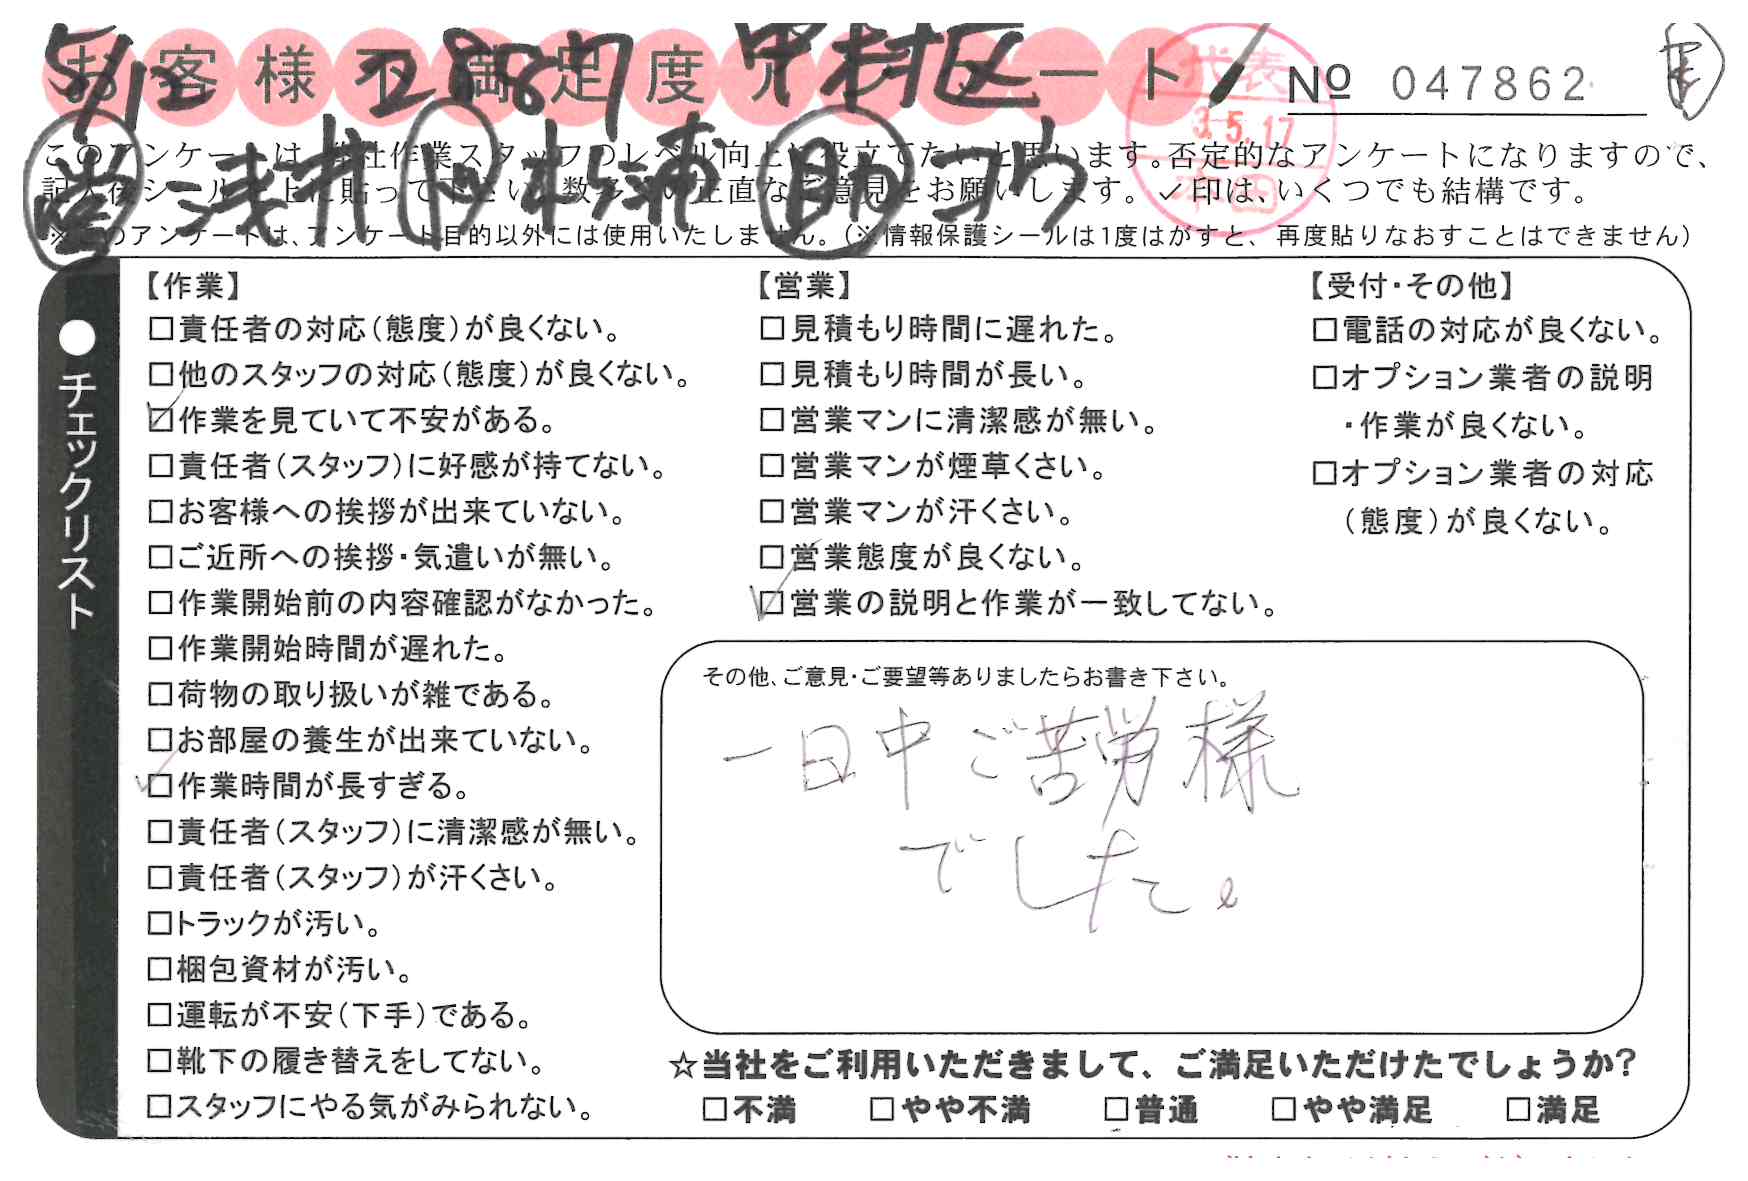 お客様不満足度アンケート
5/12 2887 中村区
No 047862
代表
3.5.17
本田
営 浅井 松浦 助 コウ
このアンケートは、当社作業スタッフのレベル向上に役立てたいと思います。否定的なアンケートになりますので、
記入後シールを上に貼って下さい。数多くの正直なご意見をお願いします。✓印は、いくつでも結構です。
※このアンケートは、アンケート目的以外には使用いたしません。（※情報保護シールは1度はがすと、再度貼りなおすことはできません）
●チェックリスト
【作業】
□責任者の対応（態度）が良くない。
□他のスタッフの対応（態度）が良くない。
☑作業を見ていて不安がある。
□責任者（スタッフ）に好感が持てない。
□お客様への挨拶が出来ていない。
□ご近所への挨拶・気遣いが無い。
□作業開始前の内容確認がなかった。
□作業開始時間が遅れた。
□荷物の取り扱いが雑である。
□お部屋の養生が出来ていない。
☑作業時間が長すぎる。
□責任者（スタッフ）に清潔感が無い。
□責任者（スタッフ）が汗くさい。
□トラックが汚い。
□梱包資材が汚い。
□運転が不安（下手）である。
□靴下の履き替えをしてない。
□スタッフにやる気がみられない。
【営業】
□見積もり時間に遅れた。
□見積もり時間が長い。
□営業マンに清潔感が無い。
□営業マンが煙草くさい。
□営業マンが汗くさい。
□営業態度が良くない。
☑営業の説明と作業が一致してない。
【受付・その他】
□電話の対応が良くない。
□オプション業者の説明
・作業が良くない。
□オプション業者の対応
（態度）が良くない。
その他、ご意見・ご要望等ありましたらお書き下さい。
一日中ご苦労様
でした。
☆当社をご利用いただきまして、ご満足いただけたでしょうか？
□不満 □やや不満 □普通 □やや満足 □満足